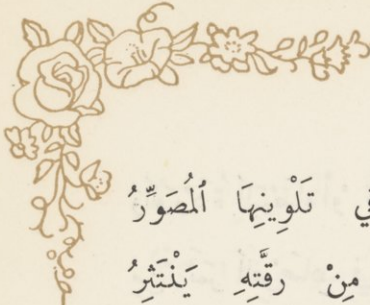 في تَلْوِينِهَا ٱلْمُصَوِّرُ
مِنْ رِقَّتِهِ يَنْتَثِرُ